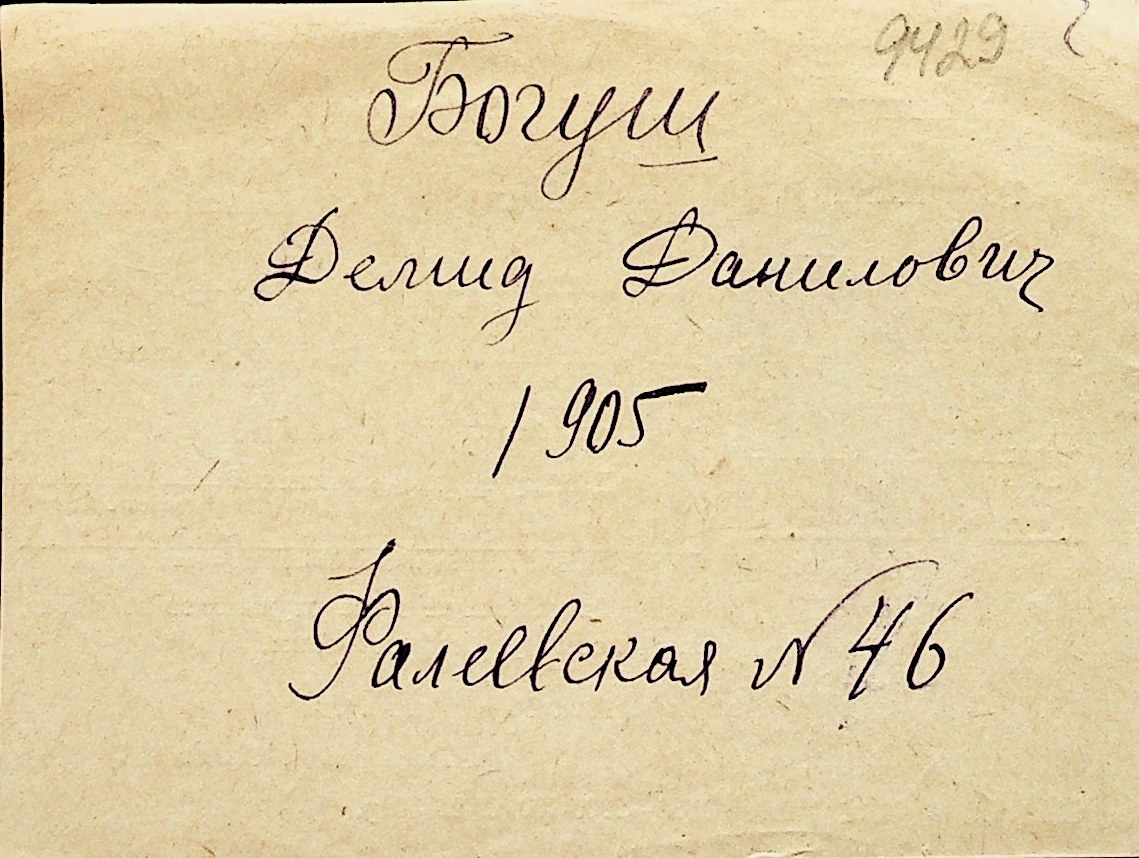 9429
Богуш
Демид Данилович
1905
Фалеевская № 46